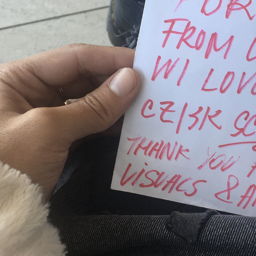 FOR
FROM
WI LOV
CZ/SK SC
THANK YOU
VISUALS & A